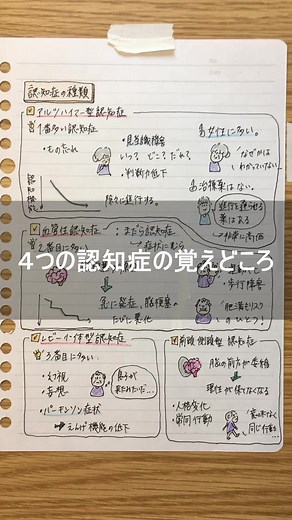 認知症の種類
アルツハイマー型認知症
1番多い認知症
・ものわすれ
・見当識障害
いつ? どこ? だれ?
・判断力低下
女性に多い。
なぜかは
わかっていない
認知機能
徐々に進行する。
治療薬はない。
進行を遅らせる
薬はある
4つの認知症の覚えどころ
血管性認知症
まだら認知症
2番目に多い
症状にむら
急に発症、脳梗塞の
たびに悪化
・歩行障害
肥満もリスク
のひとつ!
レビー小体型認知症
3番目に多い
・幻視
・妄想
・パーキンソン症状
→えんげ機能の低下
前頭側頭型認知症
脳の前方が萎縮
理性が保てなくなる
・人格変化
・常同行動
同じ行動…